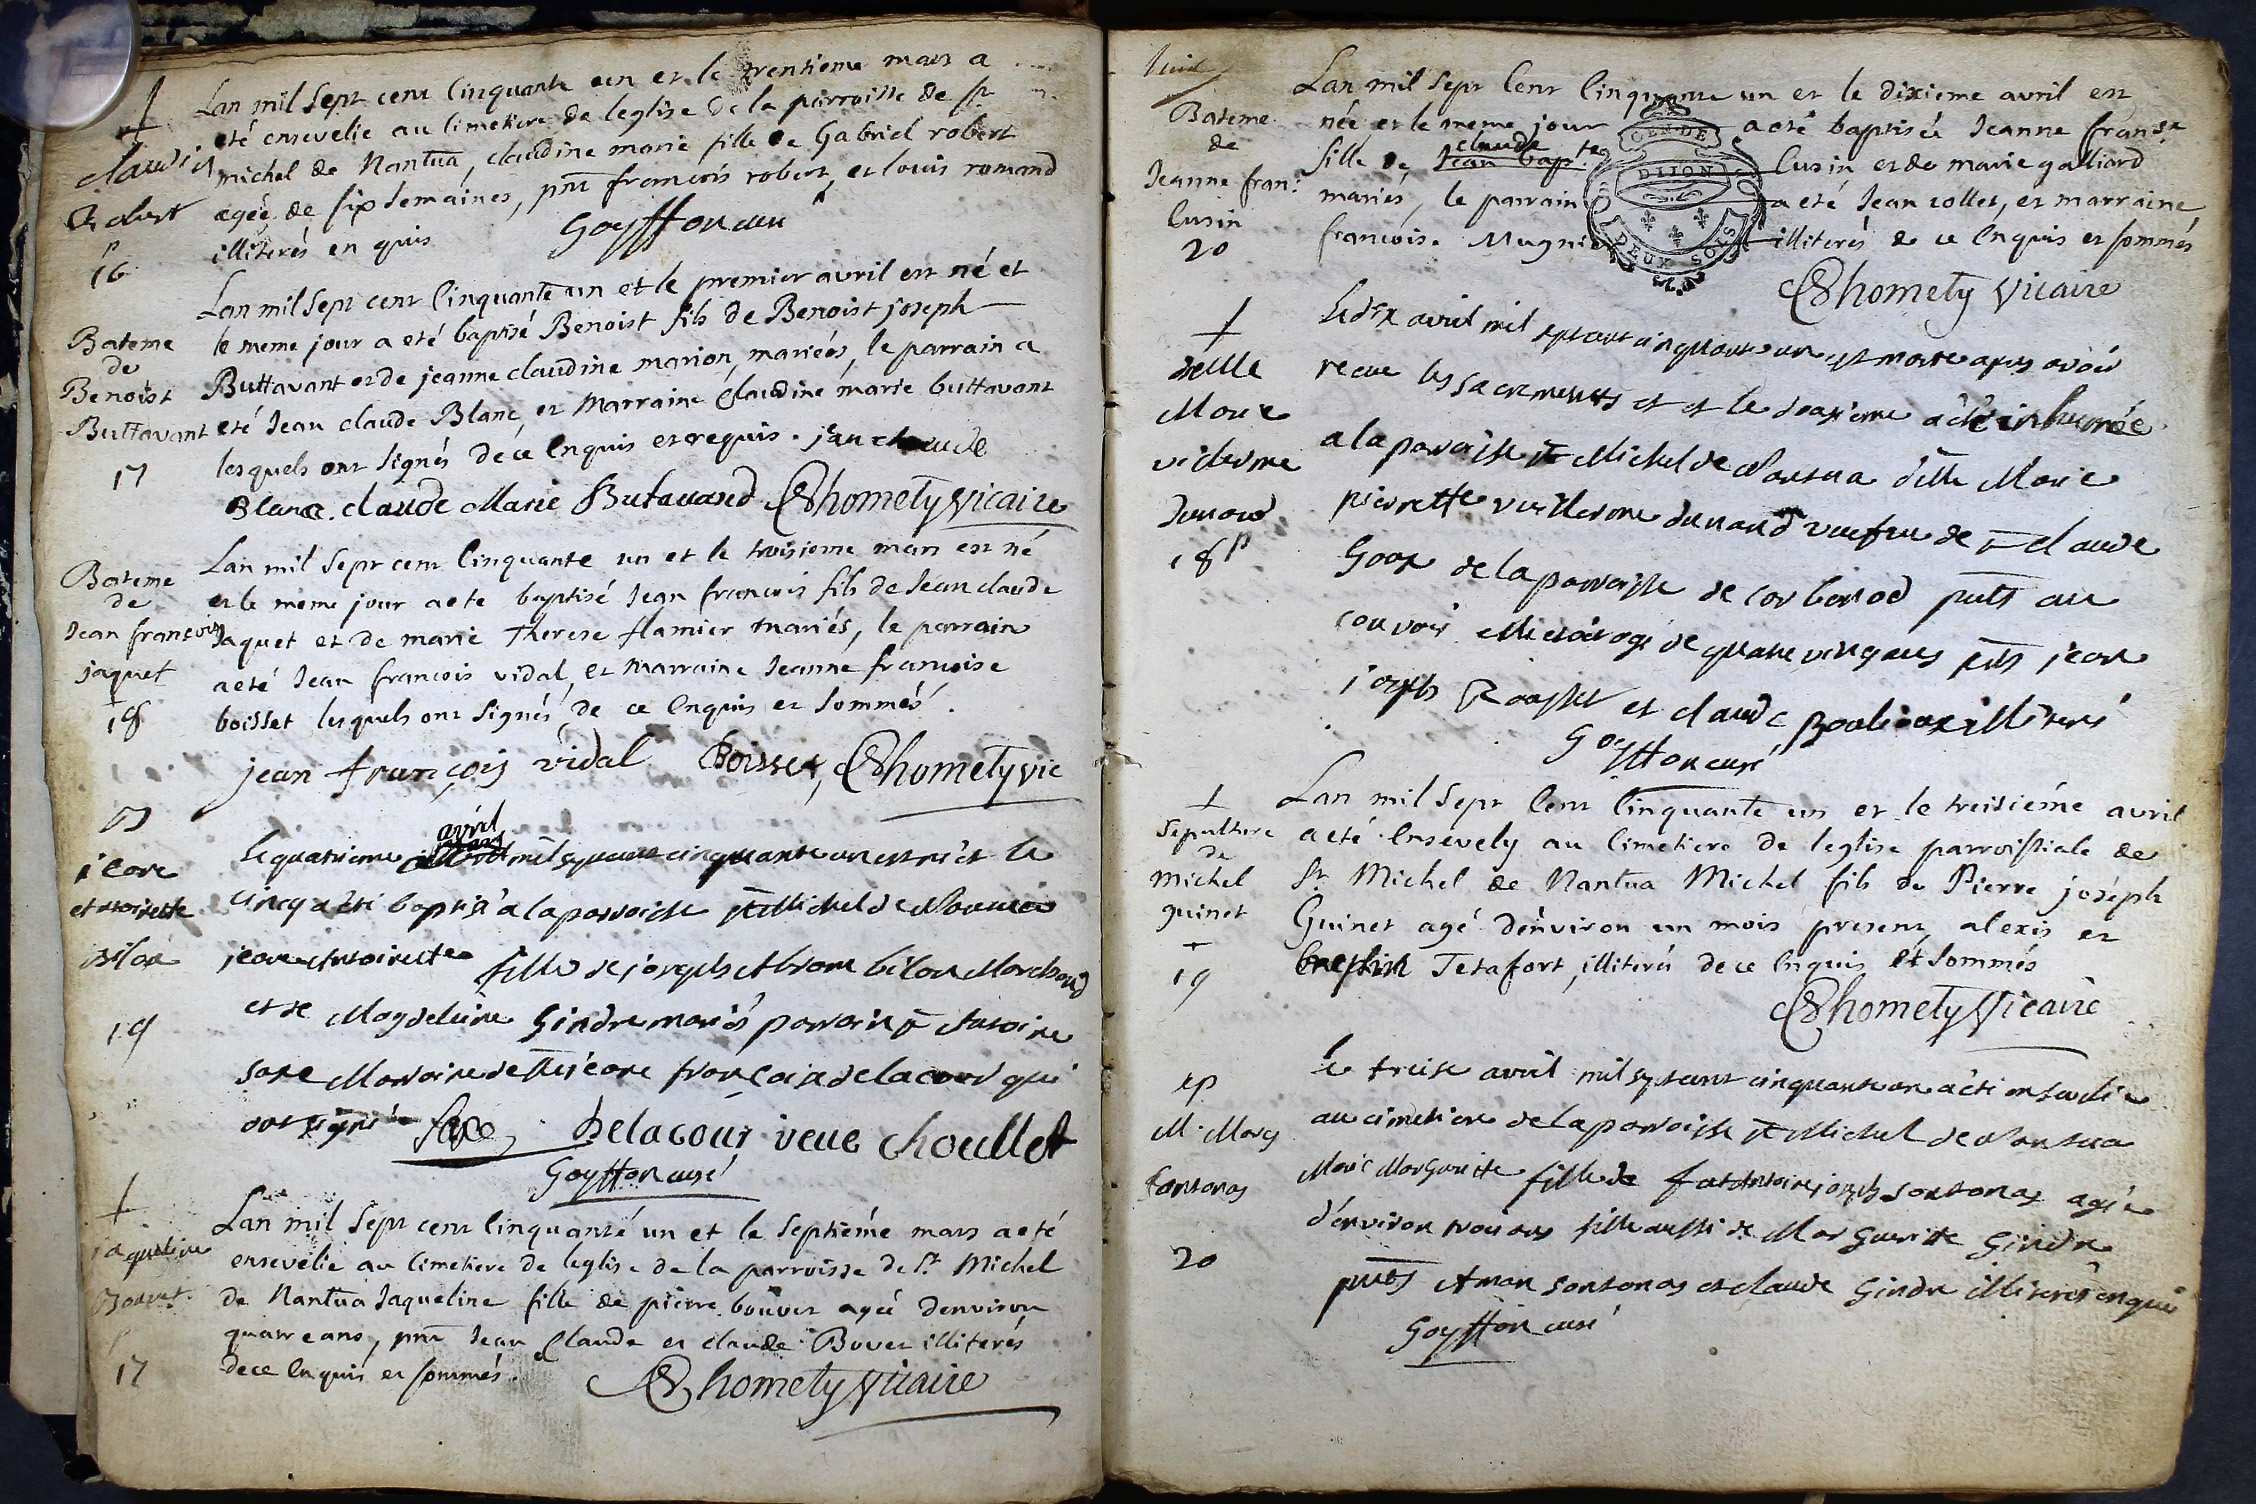 Lan mil sept cent Cinquante un et le trentieme mars a
eté ensevelie au Cimetiere de leglise de la parroisse de st
michel de Nantua, claudine marie fille de Gabriel robert
agée de six semaines, pnt francois robert, et louis romand
illiterés enquis
Goyffon curé
claudi
Robert
p
16
Lan mil sept cent Cinquante un et le premier avril est né et
le meme jour a eté baptisé Benoist fils de Benoist joseph
Buttavant et de jeanne claudine marion, mariéés, le parrain a
eté Jean claude Blanc, et Marraine Claudine marie buttavant
lesquels ont signés de ce Enquis et requis. jean claude
Blanc. claude Marie Butavand Chomety vicaire
Bateme
de
Benoist
Buttavant
17
Lan mil sept cent Cinquante un et le troisieme mars est né
et le meme jour a ete baptisé Jean francois fils de Jean claude
Jaquet et de marie Therese flamier mariés, le parrain
a eté Jean francois vidal, et marraine Jeanne francoise
boisset lesquels ont signés de ce Enquis et sommés.
jean françois vidal Boisset, Chomety vic
Bateme
de
Jean francois
jaquet
18
le quatrieme avril mil sept cent cinquante un est né et le
cinq a été baptisé a la parroisse st Michel de Nantua
jeanne Antoinette fille de joseph Abram bilon Marchand
et de Magdeleine Gindre mariés parrain sr Antoine
saxe Marraine delle jeanne francoise delacour qui
ont signé Saxe, Delacour veue choullet
Goyffon curé
B
jeane
antoinette
Bilon
19
Lan mil sept cent Cinquante un et le septiéme mars a eté
ensevelie au Cimetiere de leglise de la parroisse de st Michel
de Nantua Jaqueline fille de pierre bouvet agée denviron
quatre ans, pnt Jean Claude et claude Bovet illiterés
de ce Enquis et sommés.
Chomety vicaire
jaqueline
Bouvet.
17
Lan mil sept Cent Cinquante un et le dixieme avril est
née et le meme jour a eté baptisée Jeanne franse
fille de claude Jean bapte Cusin et de marie galliard
mariés, le parrain a eté Jean collet, et marraine
francoise Mugnier illiterés de ce Enquis et sommés
Chomety vicaire
GEN. DE
DIJON
DEUX SOLS
Bateme
de
Jeanne fran:
Cusin
20
Le dix avril mil sept cent cinquante un est morte apres avoir
recue les sacrements et et le douzieme a été inhumée
a la paroisse st Michel de Nantua dlle Marie
pierrette vuillerme dunand veufve de sr claude
Goox de la parroisse de corbonod puts au
convoi agé de quatre vingt ans pnts jean
joseph Rousset et claude illiterés
Goyffon curé
delle
Marie
vuilerme
dunand
18 p
Lan mil sept Cent Cinquante un et le treisiéme avril
a eté Ensevely au Cimetiere de leglise parroissiale de
st Michel de Nantua Michel fils de Pierre joseph
Guinet agé d'environ un mois present, alexis et
baptiste Tetafort, illiterés de ce Enquis et sommés
Chomety vicaire
sepulture
de
michel
guinet
19
le treise avril mil sept cent cinquante un a été ensevelie
au cimetiere de la parroisse st Michel de Nantua
Marie Marguerite fille de fut Antoine joseph sontonas agée
d'environ trois ans fille aussi de Marguerite Gindre
pnts Aman sontonas et claude Gindre illiterés enquis
Goyffon curé
M. Marg
sontonas
20